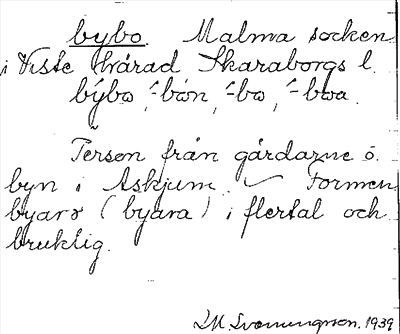 bybo. Malma socken
i Viste härad Skaraborgs l.
býbo, ´-bon, ´-bo, ´-boa.
Person från gårdarne ö.
byn i Askjum. Formen
byarə (byara) i flertal och
bruklig.
1939